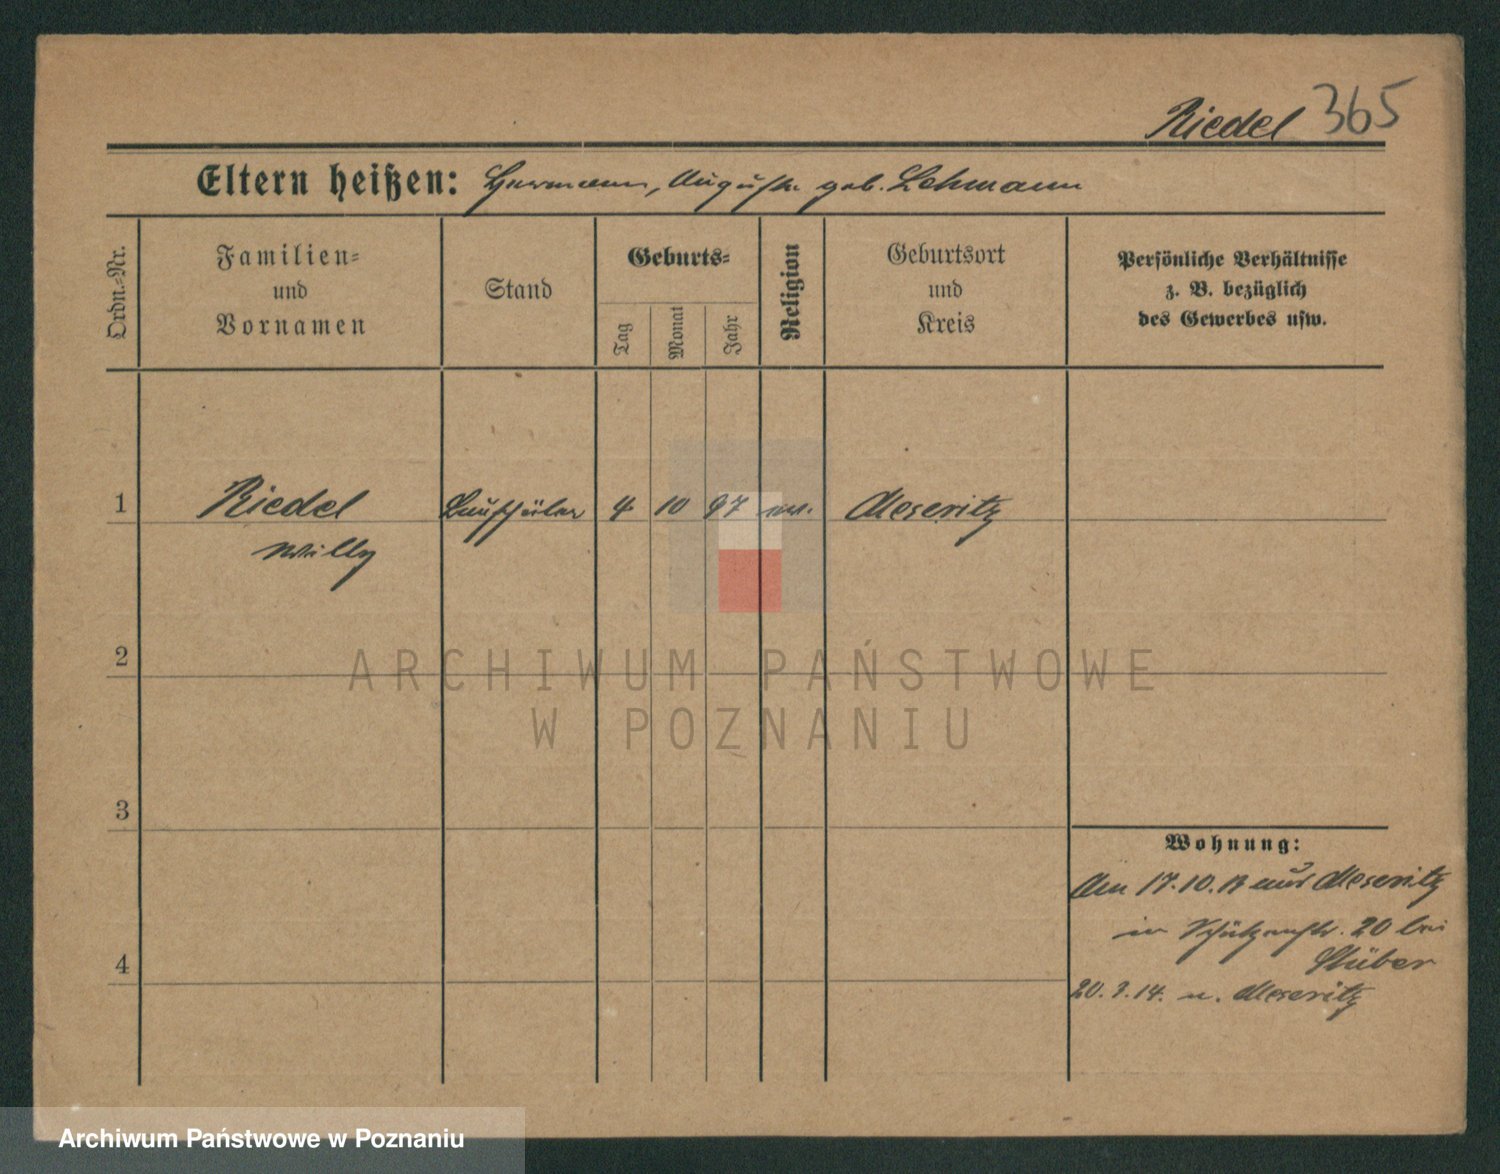 Riedel 365
Eltern heißen: Hermann, Auguste geb. Lehmann
Ordn.-Nr.
Familien-
und
Vornamen
Stand
Geburts-
Tag
Monat
Jahr
Religion
Geburtsort
und
Kreis
Persönliche Verhältnisse
z. B. bezüglich
des Gewerbes usw.
1 Riedel 4 10 97 ev. Meseritz
Willy
2
3
4
Wohnung:
Am 17.10.13 aus Meseritz
in Schützenstr. 20 bei
Stüber
20.3.14. n. Meseritz
ARCHIWUM PAŃSTWOWE
W POZNANIU
Archiwum Państwowe w Poznaniu